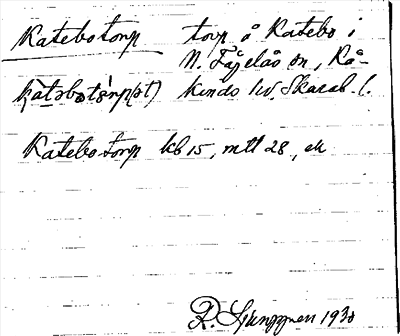 Katebotorp torp å Katebo i
N. Fågelås sn, Kå-
kinds hd. Skarab. l.
Katebo torp kb 15, mtl 28, ek
R. Ljunggren 1930